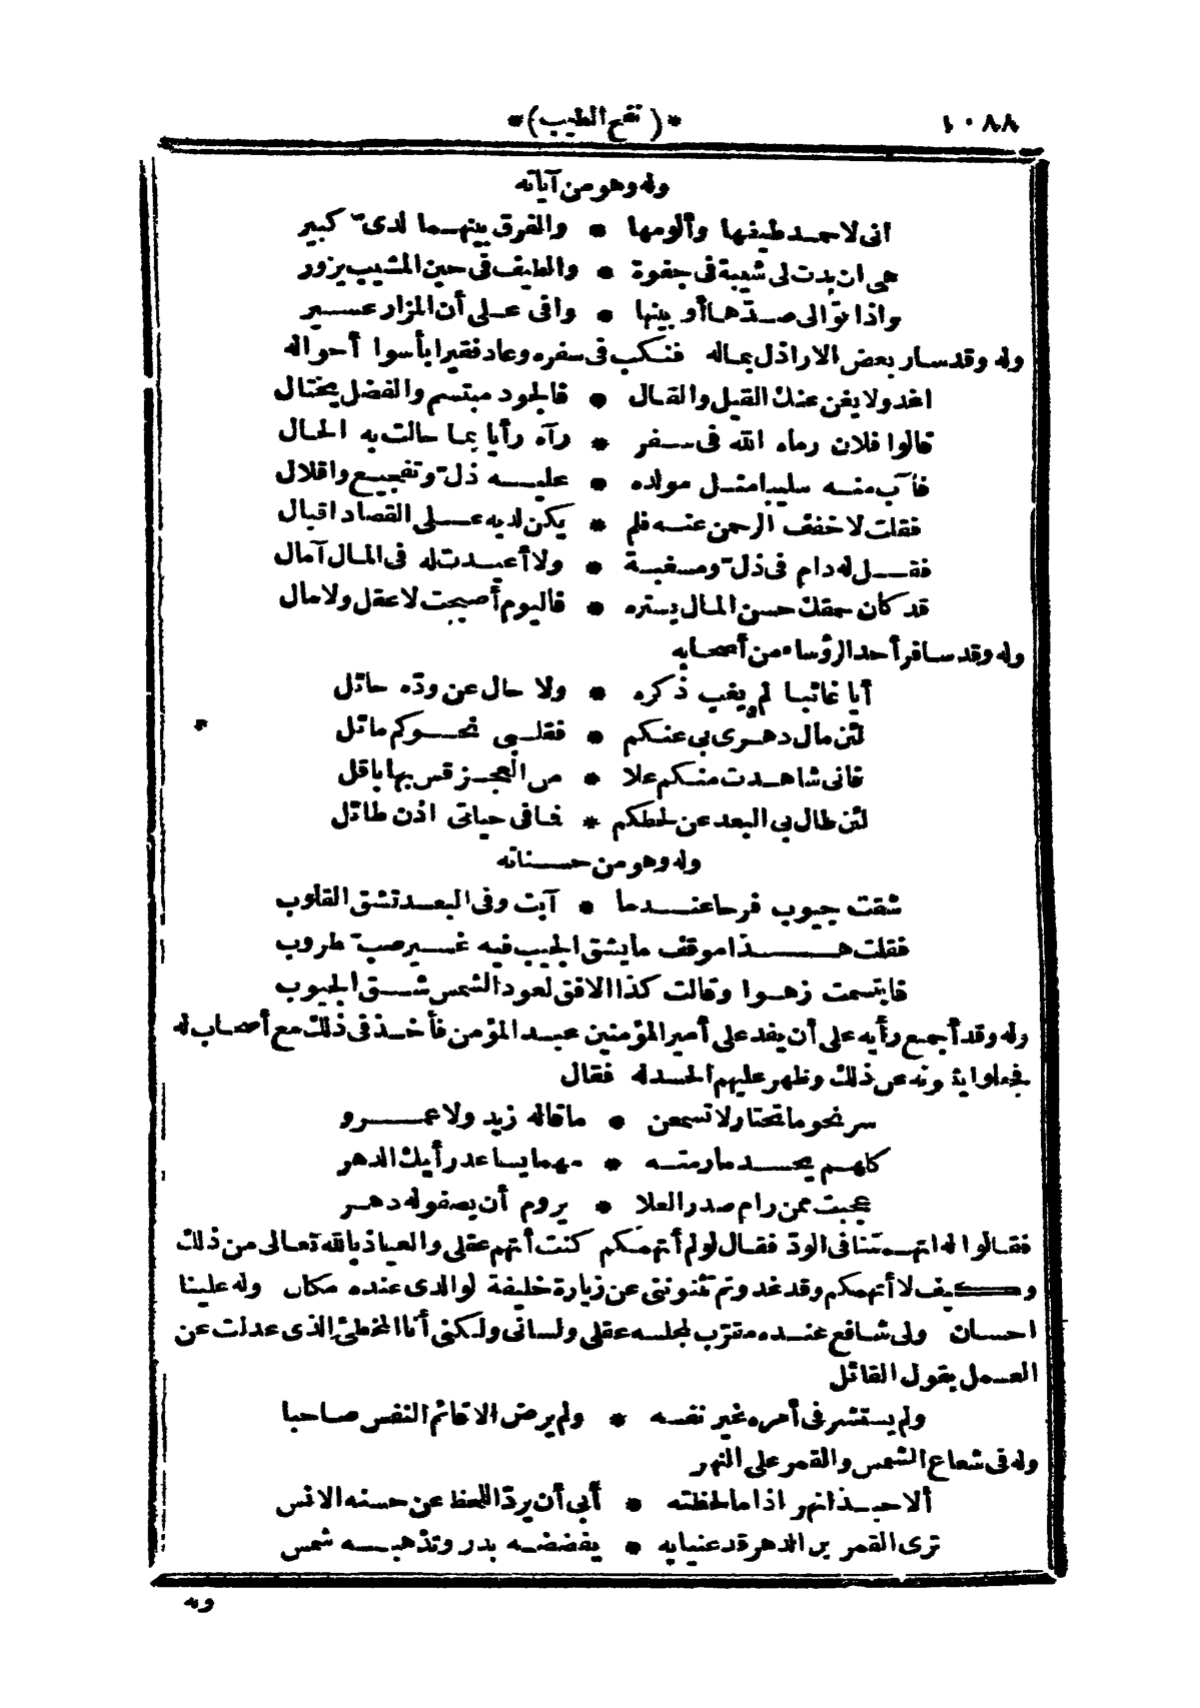 ١٠٨٨ *(نفح الطيب)*
وله وهو من آياته
انى لاحمد طيفها وألومها * والفرق بينهما لدىّ كبير
هى ان بدت لى شيبة فى جفوة * والطيف فى حين المشيب يزور
واذا توالى صدّها أو بينها * وافى على أن المزار عسير
وله وقد سار بعض الاراذل بماله فنكب فى سفره وعاد فقيرا بأسوا أحواله
اغد ولا يغن عنك القيل والقال * فالجود مبتسم والفضل يختال
قالوا فلان رماه الله فى سفر * رآه رأيا بما حالت به الحال
فآب منه سليبا مثل مولده * عليه ذلّ وتفجيع واقلال
فقلت لا خفف الرحمن عنه فلم * يكن لديه على القصاد اقبال
فقل له دام فى ذلّ ومسغبة * ولا أعيدت له فى المال آمال
قد كان حمقك حسن المال يستره * فاليوم أصبحت لا عقل ولا مال
وله وقد سافر أحد الرؤساء من أصحابه
أيا غائبا لم يغب ذكره * ولا حال عن ودّه حائل
لئن مال دهرى بى عنكم * فقلبى نحوكم مائل
فانى شاهدت منكم علا * من العجز قس بها باقل
لئن طال بى البعد عن لحظكم * فما فى حياتى اذن طائل
وله وهو من حسناته
شقت جيوب فرحا عندما * آبت وفى البعد تشق القلوب
فقلت هذا موقف ما يشق الجيب فيه غير صبّ طروب
فابتسمت زهوا وقالت كذا الافق لعود الشمس شق الجيوب
وله وقد أجمع رأيه على أن يفد على أمير المؤمنين عبد المؤمن فأخذ فى ذلك مع أصحاب له
فجعلوا يثنونه عن ذلك وظهر عليهم الحسد له فقال
سر نحو ما تختار ولا تسمعن * ما قاله زيد ولا عمرو
كلهم يحسد ما رمته * مهما يساعد رأيك الدهر
عجبت ممن رام صدر العلا * يروم أن يصفو له دهر
فقالوا له اتهمتنا فى الودّ فقال لو لم أتهمكم كنت أتهم عقلى والعياذ بالله تعالى من ذلك
وكيف لا أتهمكم وقد غدوتم تثنونى عن زيارة خليفة لوالدى عنده مكان وله علينا
احسان ولى شافع عنده مقرّب لمجلسه عقلى ولسانى ولكنى أنا المخطئ الذى عدلت عن
العمل بقول القائل
ولم يستشر فى أمره غير نفسه * ولم يرض الا قائم النفس صاحبا
وله فى شعاع الشمس والقمر على النهر
ألا حبذا نهر اذا ما لحظته * أبى أن يردّ اللحظ عن حسنه الانس
ترى القمرين الدهر قد عنيا به * يفضضه بدر وتذهبه شمس
وله